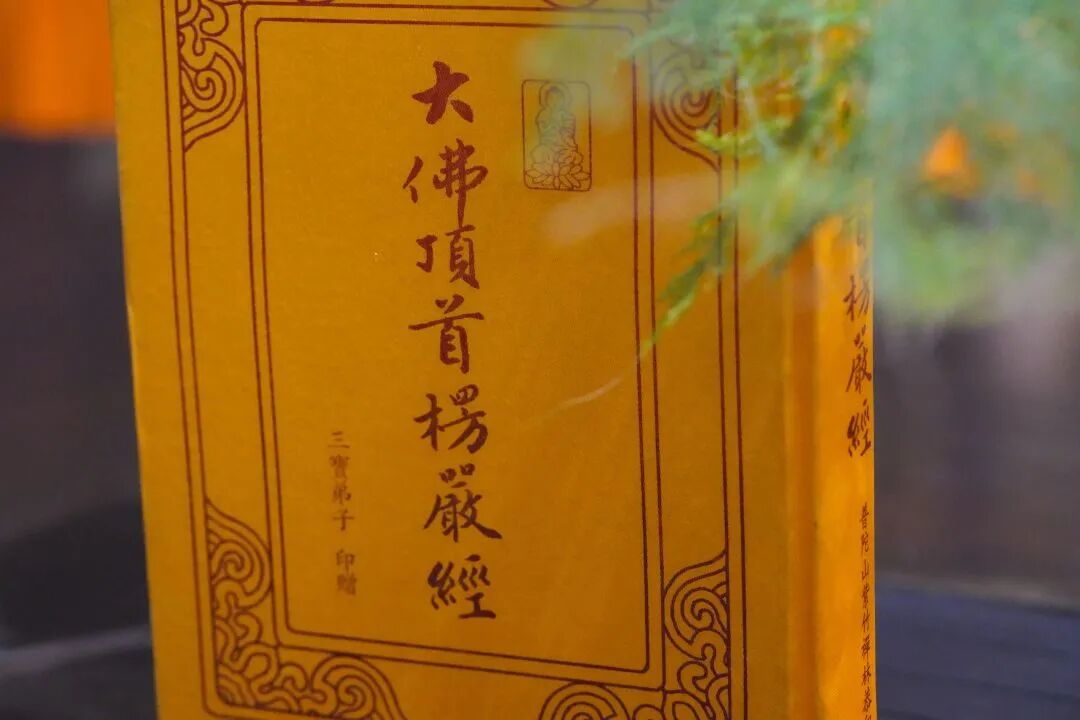 大佛頂首楞嚴經
三寶弟子 印贈
首楞嚴經
普陀山紫竹禪林恭